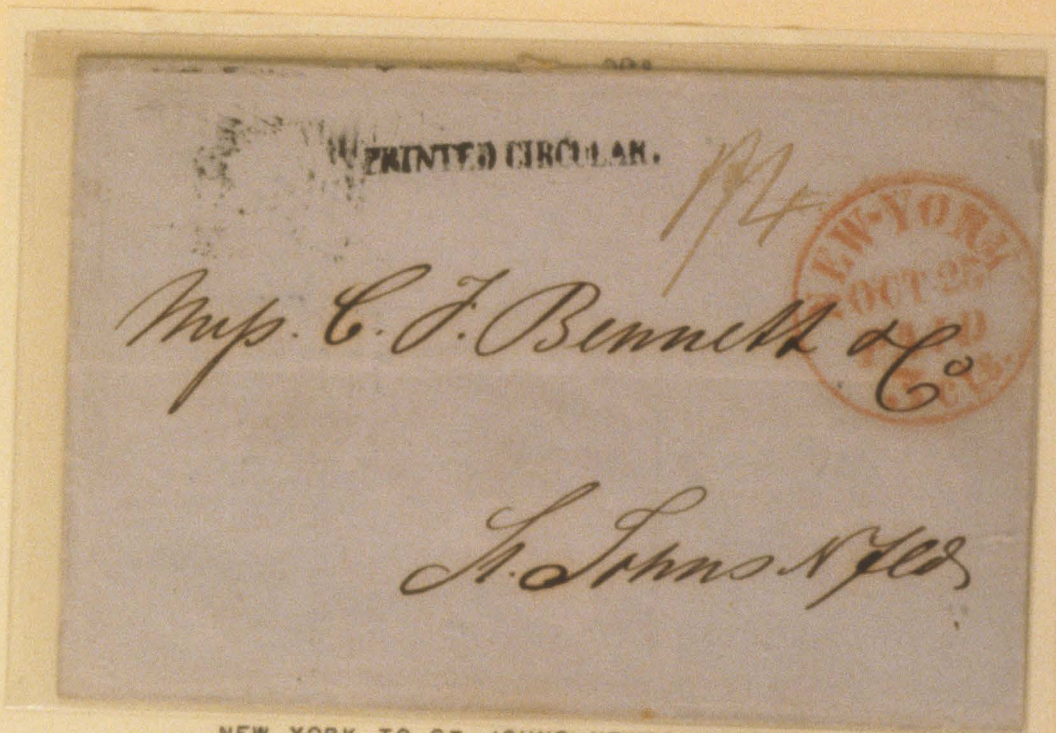 PRINTED CIRCULAR.
NEW-YORK
OCT 25
PAID
CTS.
Mess. C. F. Bennett & Co
St. Johns Nfld
NEW YORK TO ST. JOHNS